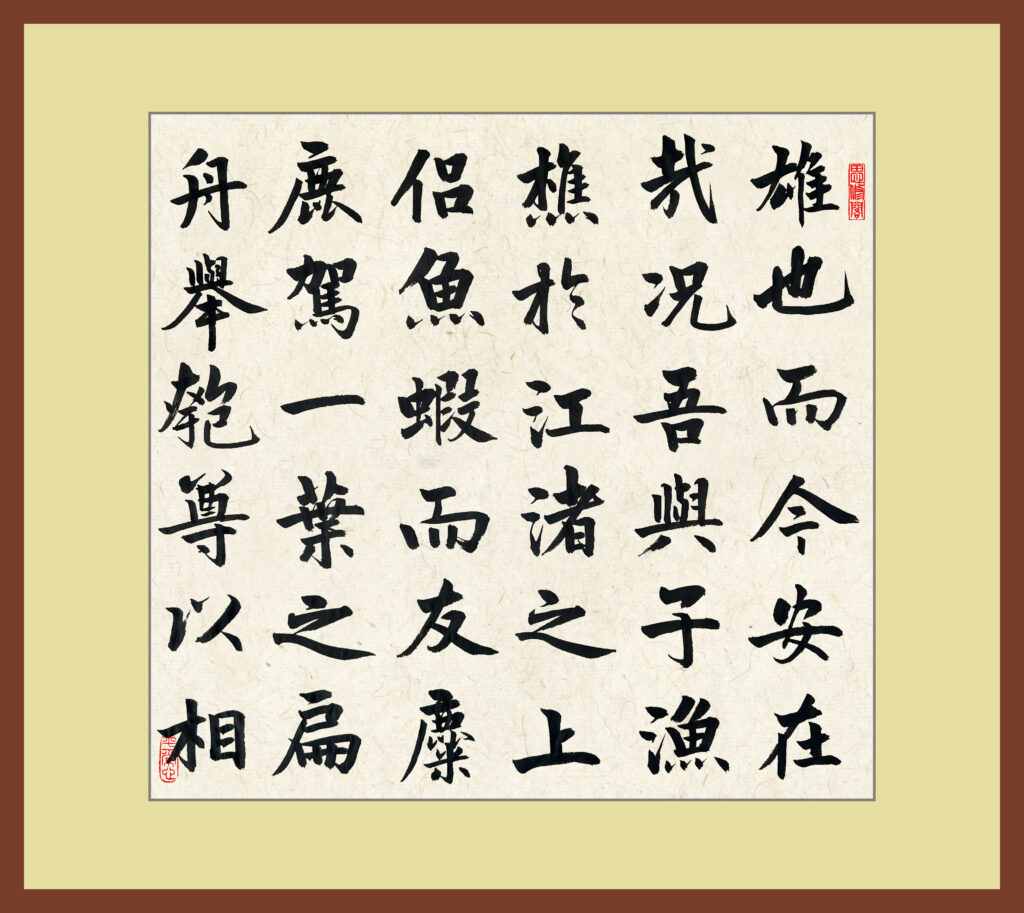 思修閣
雄也而今安在
哉况吾與子漁
樵於江渚之上
侶魚蝦而友麋
鹿駕一葉之扁
舟舉匏尊以相